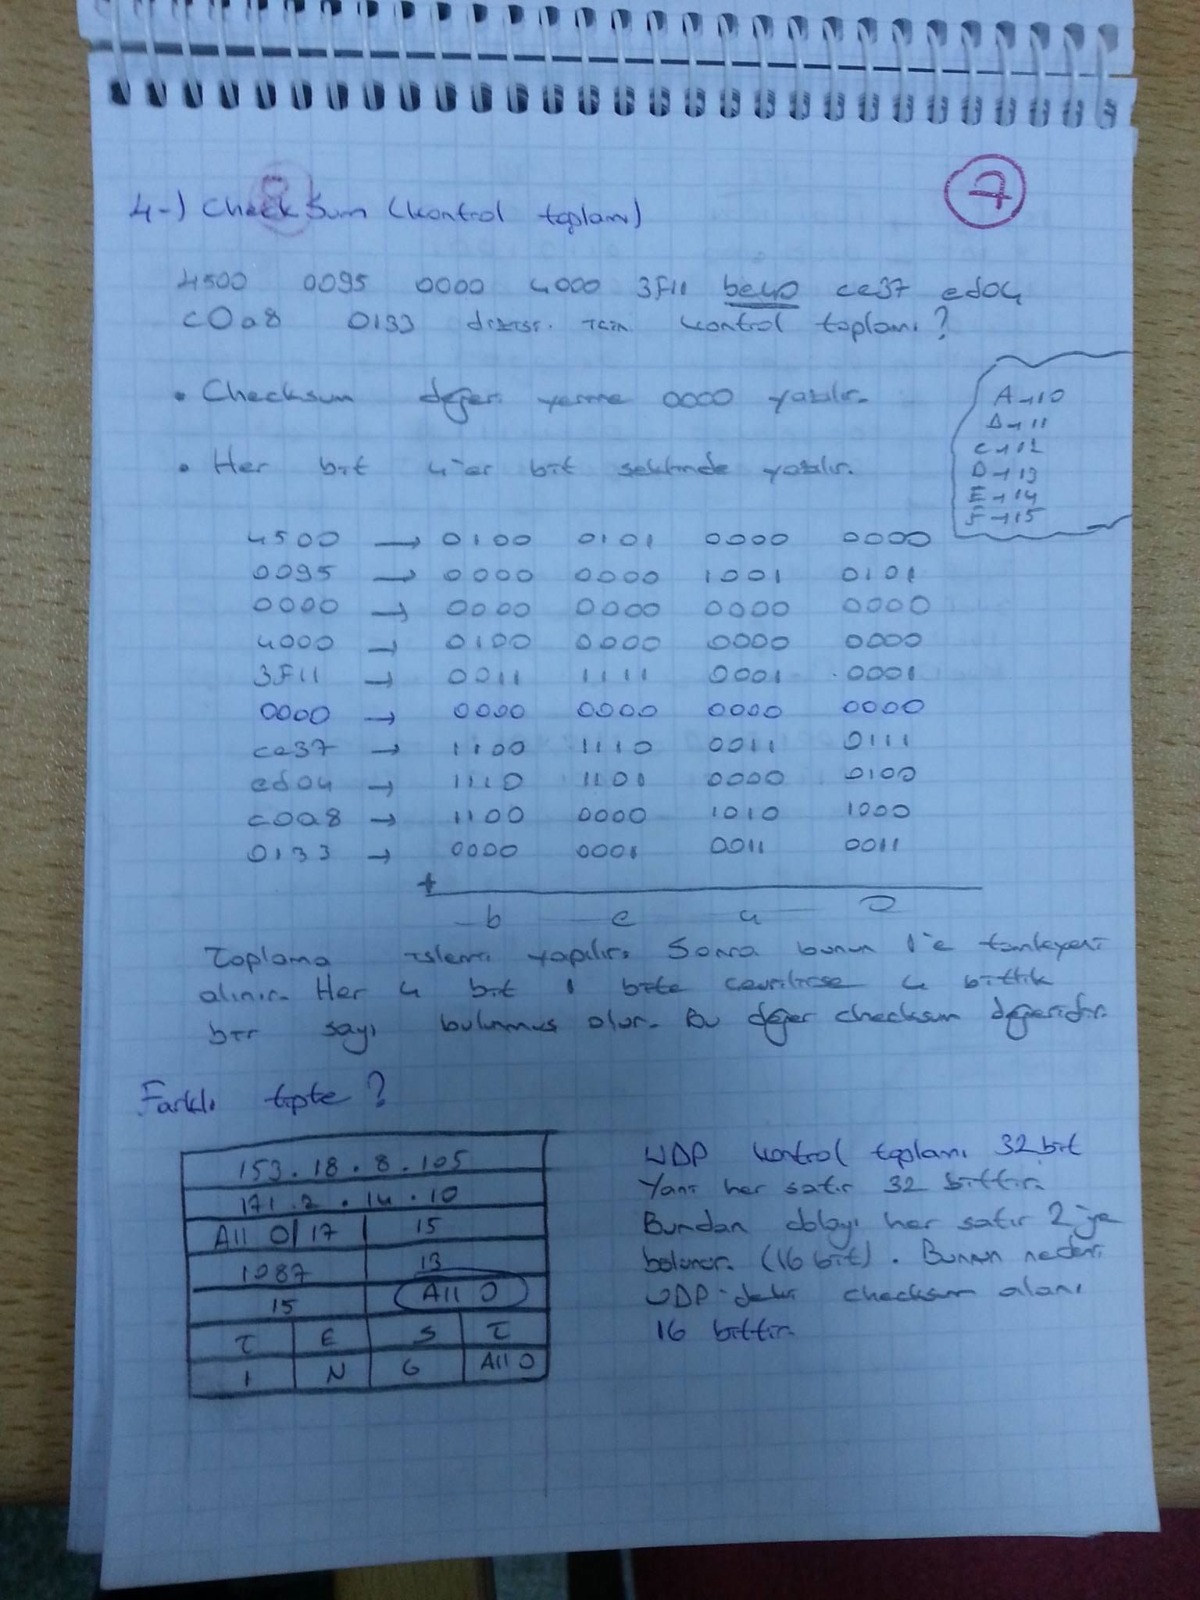 7
4-) Checksum (kontrol toplamı)
4500 0095 0000 4000 3F11 be40 ce37 ed04
c0a8 0133 dizisi için kontrol toplamı?
• Checksum değeri yerine 0000 yazılır.
• Her bit 4'er bit şeklinde yazılır.
A→10
B→11
C→12
D→13
E→14
F→15
4500 → 0100 0101 0000 0000
0095 → 0000 0000 1001 0101
0000 → 0000 0000 0000 0000
4000 → 0100 0000 0000 0000
3F11 → 0011 1111 0001 0001
0000 → 0000 0000 0000 0000
ce37 → 1100 1110 0011 0111
ed04 → 1110 1101 0000 0100
c0a8 → 1100 0000 1010 1000
0133 → 0000 0001 0011 0011
+
b e 4 0
Toplama işlemi yapılır. Sonra bunun 1'e tümleyeni
alınır. Her 4 bit 1 bite çevrilirse 4 bitlik
bir sayı bulunmuş olur. Bu değer checksum değeridir.
Farklı tipte?
153.18.8.105
171.2.14.10
All 0 17 15
1087 13
15 All 0
T E S T
I N G All 0
UDP kontrol toplamı 32 bit
Yani her satır 32 bittir.
Bundan dolayı her satır 2'ye
bölünür. (16 bit). Bunun nedeni
UDP'deki checksum alanı
16 bittir.